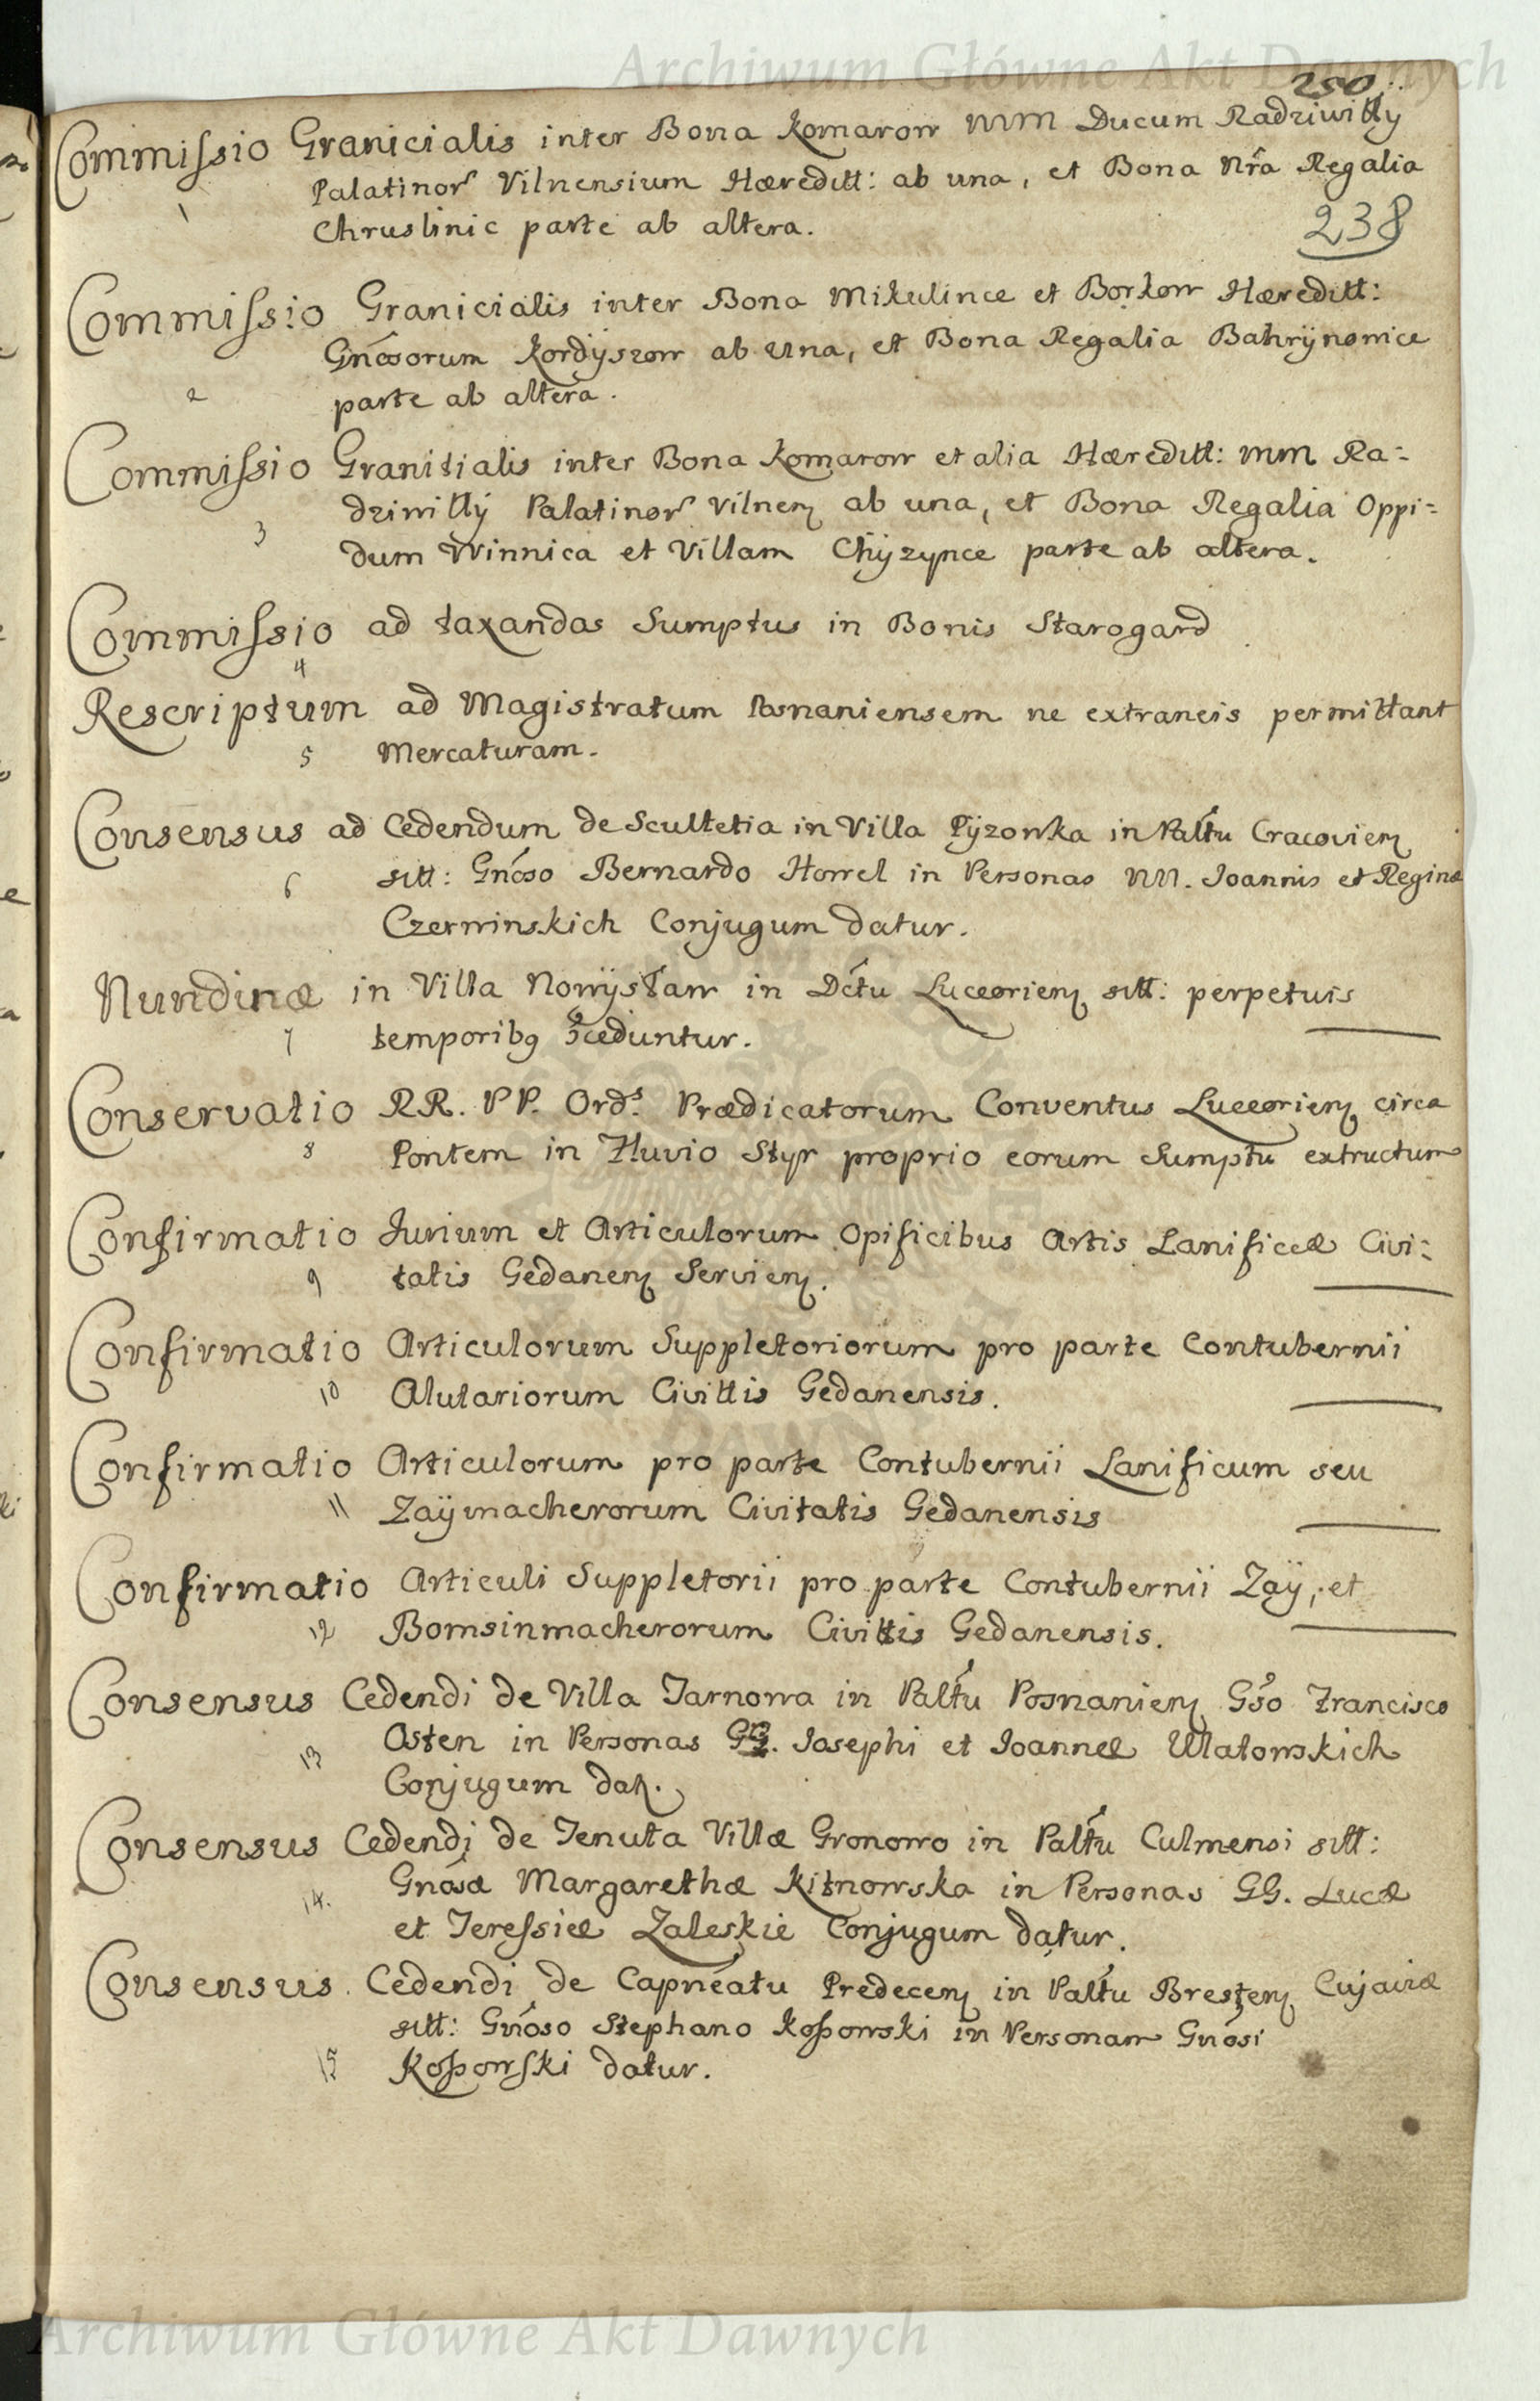 Archiwum Główne Akt Dawnych
250
Commissio Granicialis inter Bona Komarow MM Ducum Radziwiłły
Palatinor Vilnensium Hæreditt: ab una, et Bona Nr̃a Regalia
1
Chruslinic parte ab altera.
238
Commissio Granicialis inter Bona Mikulince et Borkow Hæreditt:
Gn̄cosorum Kordÿszow ab una, et Bona Regalia Bahrÿnowice
2
parte ab altera.
Commissio Granitialis inter Bona Komarow et alia Hæreditt: MM Ra=
dziwiłłÿ Palatinor Vilnen ab una, et Bona Regalia Oppi=
3
dum Winnica et Villam Chÿzynce parte ab altera.
Commissio ad taxandas Sumptus in Bonis Starogard
4
Rescriptum ad Magistratum Posnaniensem ne extraneis permittant
5 Mercaturam.
Consensus ad Cedendum de Scultetia in Villa Pÿzowka in Paltu Cracovien
6 sitt: Gn̄oso Bernardo Howel in Personas NN. Joannis et Reginæ
Czerwinskich Conjugum datur.
Nundinæ in Villa Nowÿstaw in Dc̄tu Luceorien sitt: perpetuis
7 temporibq Ɔceduntur.
Conservatio RR. PP. Ord.s Prædicatorum Conventus Luceorien circa
8 Pontem in Fluvio Styr proprio eorum Sumptu extructum
Confirmatio Jurium et Articulorum Opificibus Artis Lanificeæ Civi=
9 tatis Gedanen Servien.
Confirmatio Articulorum Suppletoriorum pro parte Contubernii
10 Alutariorum Civittis Gedanensis.
Confirmatio Articulorum pro parte Contubernii Lanificum seu
11 Zaÿmacherorum Civitatis Gedanensis
Confirmatio Articuli Suppletorii pro parte Contubernii Zaÿ, et
12 Bomsinmacherorum Civittis Gedanensis.
Consensus Cedendi de Villa Tarnowa in Paltu Posnanien Gso Francisco
13 Osten in Personas GG. Josephi et Joannæ Ulatowskich
Conjugum dat.
Consensus Cedendi de Tenuta Villæ Gronowo in Paltu Culmensi sitt:
14. Gnōsæ Margarethæ Kitnowska in Personas GG. Lucæ
et Teressiæ Zaleskie Conjugum datur.
Consensus Cedendi de Capneatu Predecen in Paltu Bresten Cujaviæ
sitt: Gnōso Stephano Koßowski in Personam Gnōsi
15 Koßowski datur.
Archiwum Główne Akt Dawnych